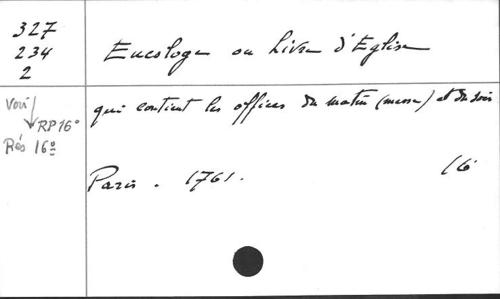 327
234
2
Eucologe ou Livre d'Eglise
Voir
RP 16°
Rés 16°
qui contient les offices du matin (messe) et du soir
Paris. 1761.
16